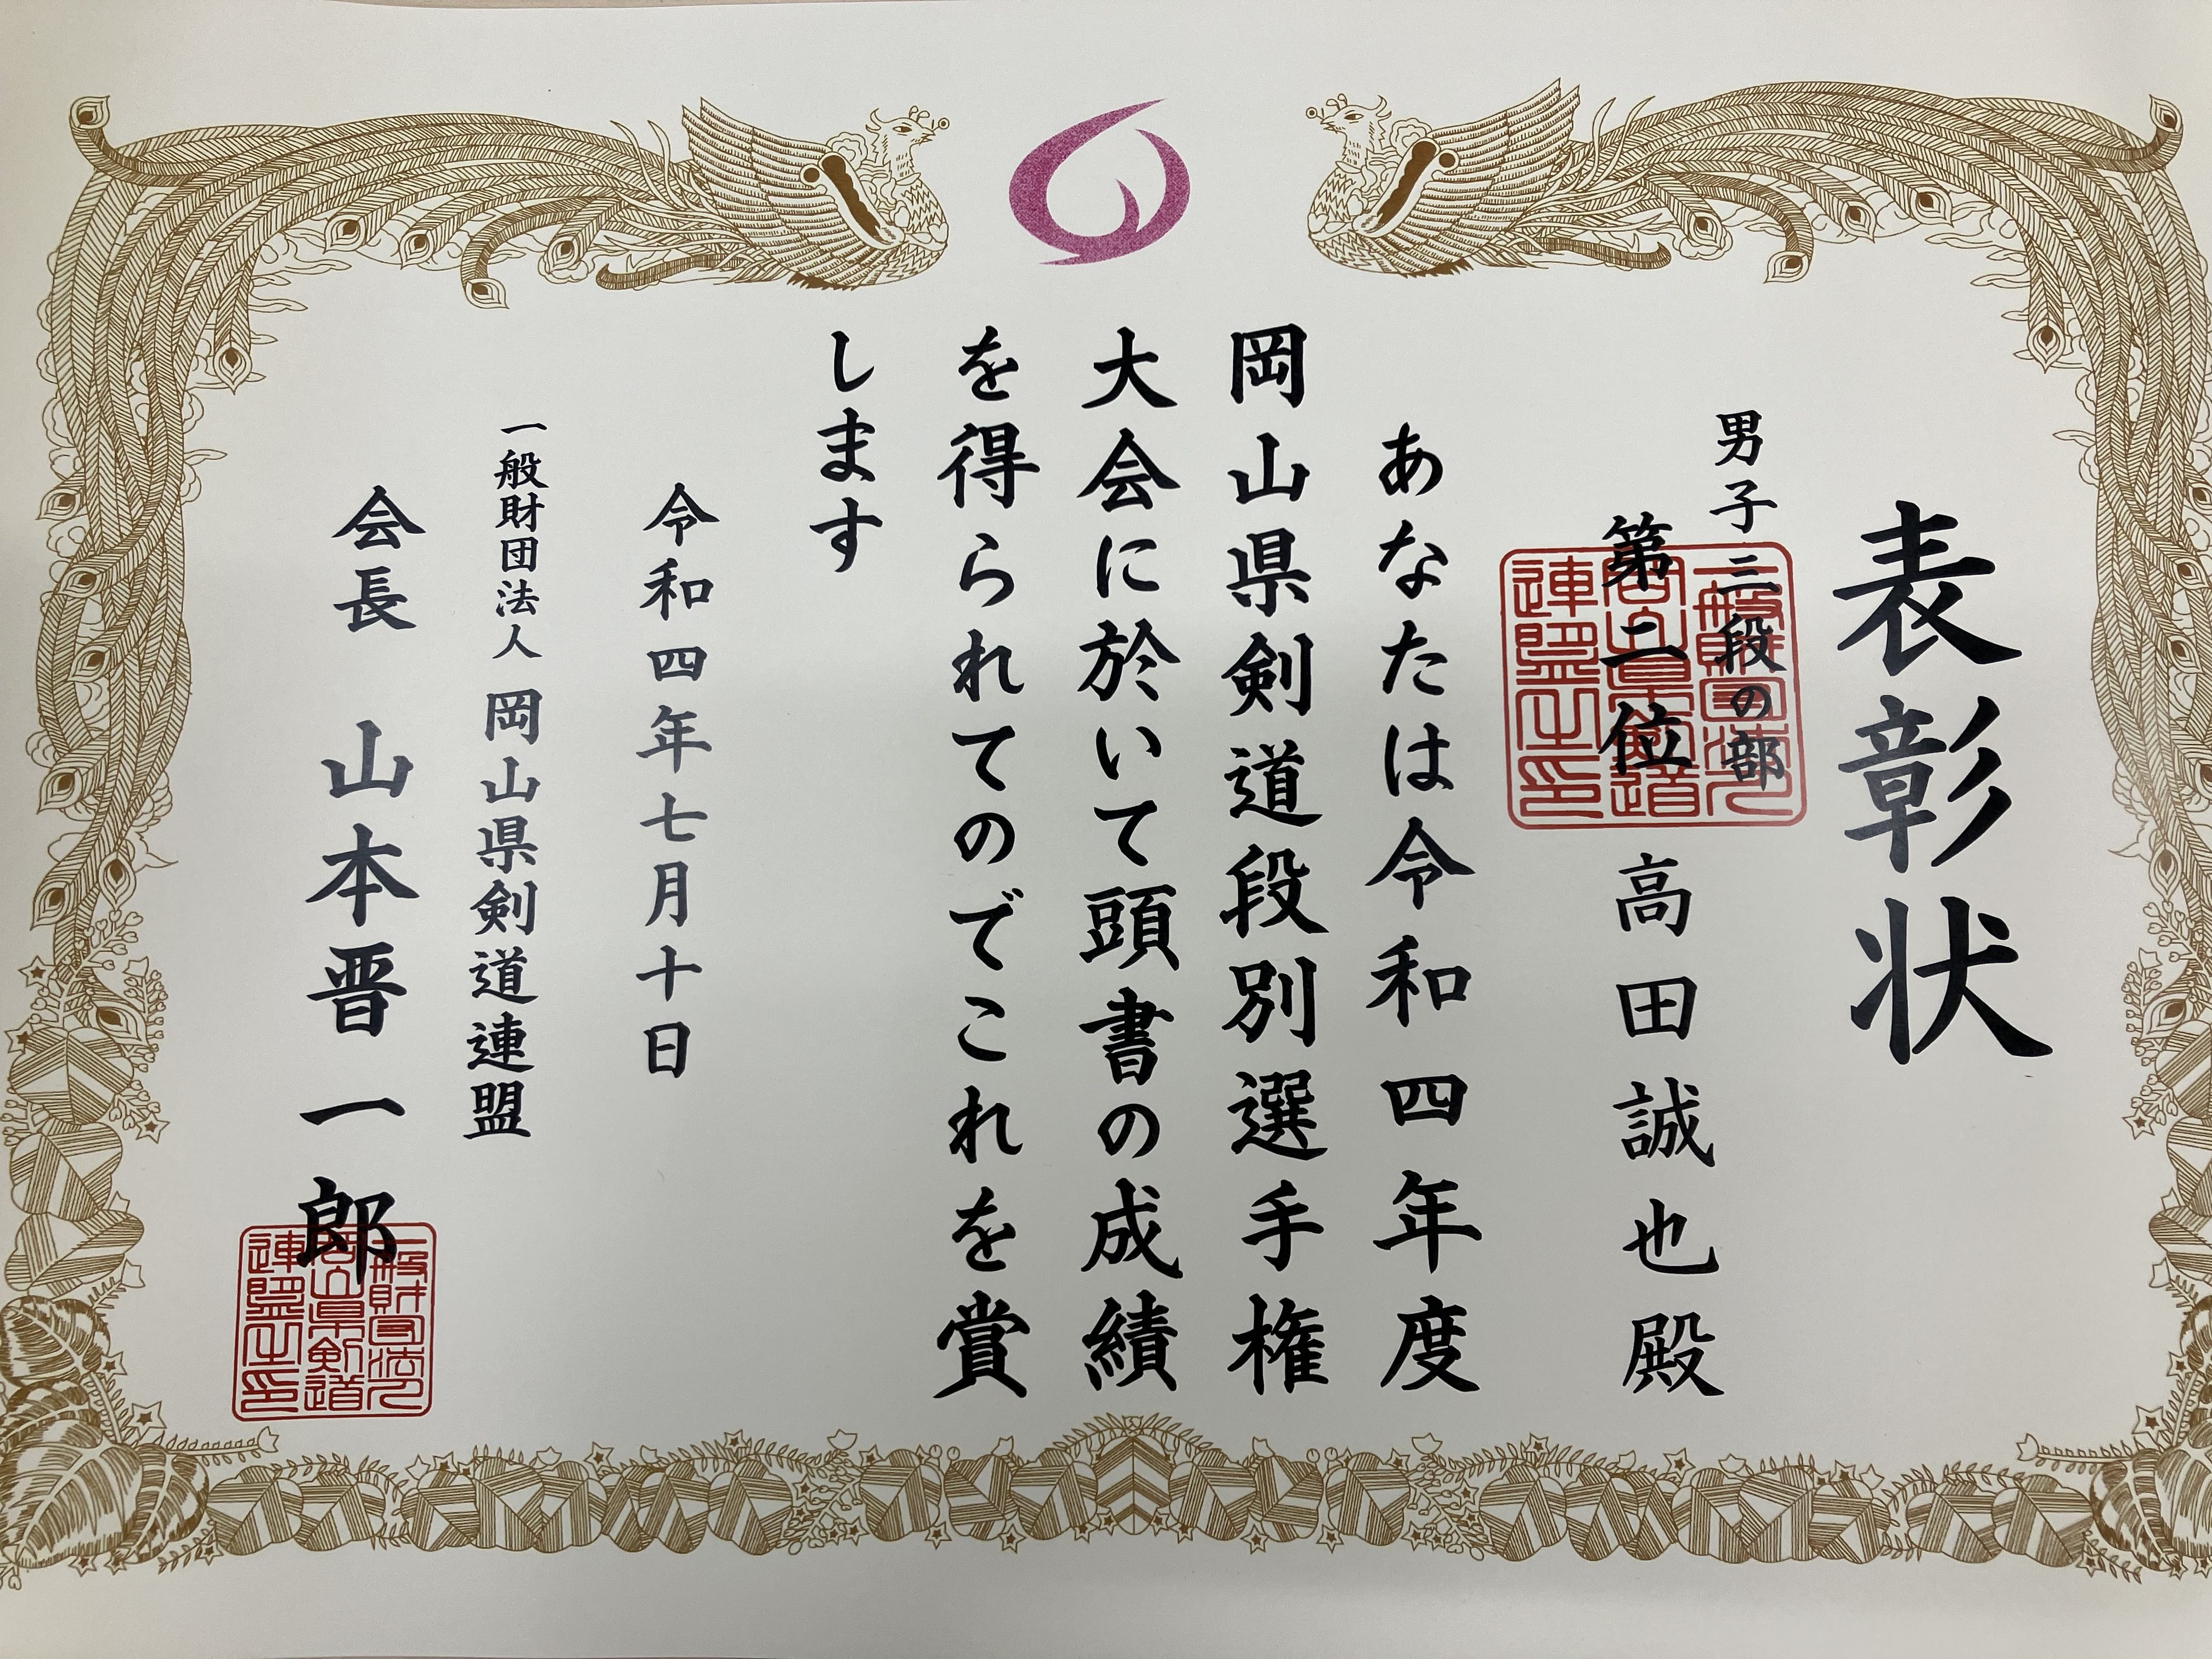 表彰状
男子三段の部
第二位
高田誠也殿
あなたは令和四年度
岡山県剣道段別選手権
大会に於いて頭書の成績
を得られてのでこれを賞
します
令和四年七月十日
一般財団法人 岡山県剣道連盟
会長 山本晋一郎
一般財団法人
岡山県剣道
連盟之印
一般財団法人
岡山県剣道
連盟之印